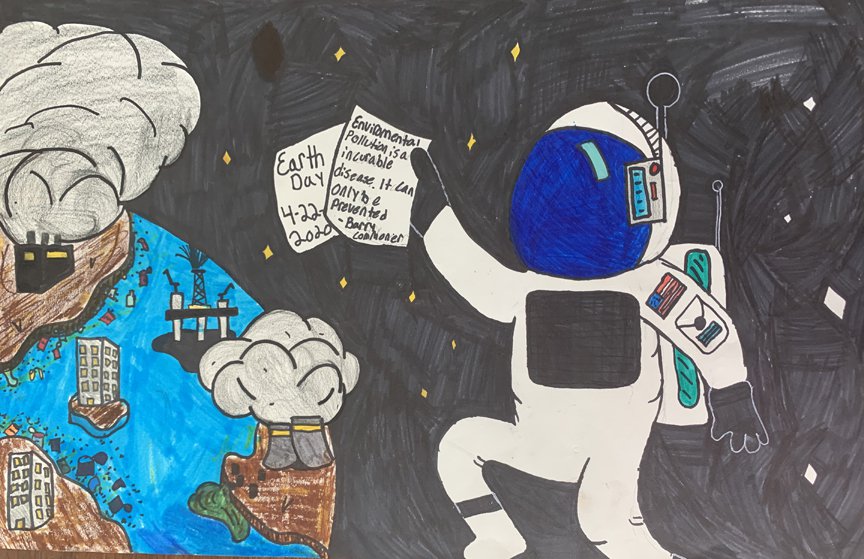 Earth
Day
4-22-
2020
Enviromental
Pollution is a
incurable
disease. It can
Only be
Prevented
Barry
Commoner